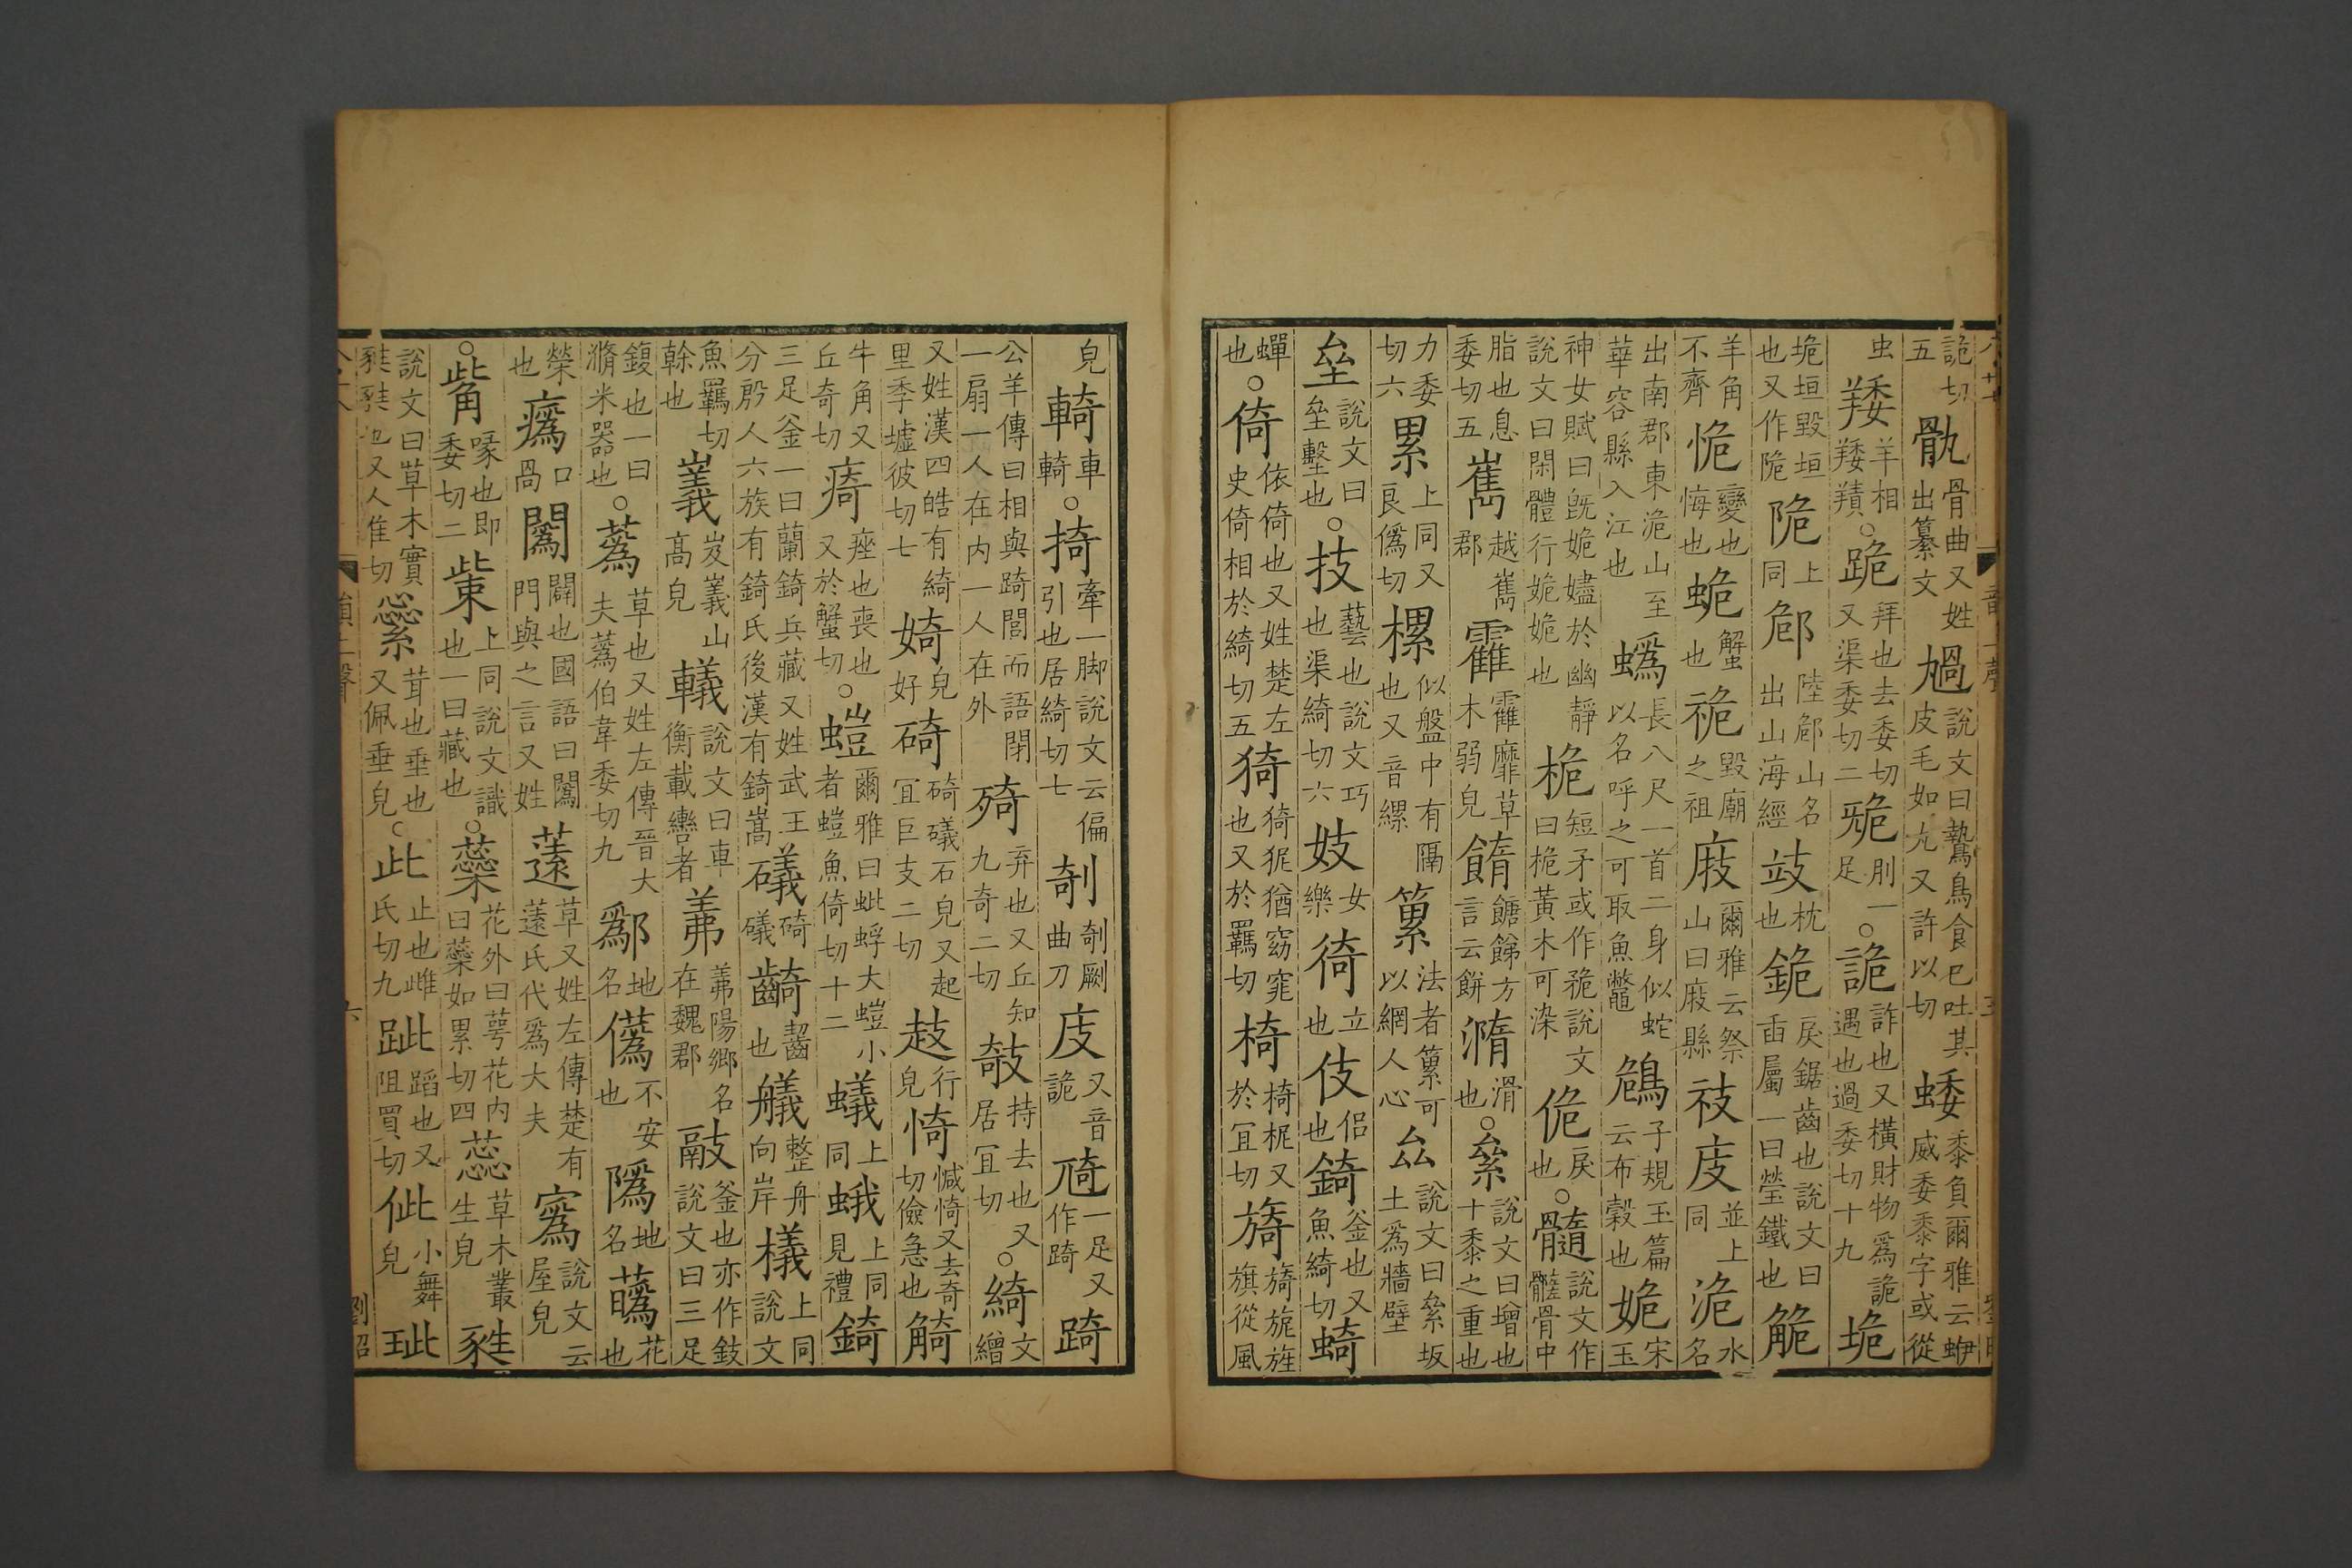 詭切五骫骨曲又姓出纂文 說文曰鷙鳥食已吐其皮毛如丸又許以切蜲黍負爾雅云蛜威委黍字或從
虫 羊相 ○跪拜也去委切又渠委切二 刖一足○詭詐也又橫財物爲詭遇也過委切十九垝
垝垣毀垣也又作陒陒上同 山名出山海經攱枕也 戾鋸齒也說文曰臿屬一曰瑩鐵也觤
羊角不齊恑變也悔也蛫蟹也祪毀廟之祖庪爾雅云祭山曰庪縣 庋並上同洈水名
出南郡東洈山至華容縣入江也蟡長八尺一首二身似蛇以名呼之可取魚鼈 子規玉篇云布穀也姽宋玉
神女賦曰旣姽嫿於幽靜說文曰閑體行姽姽也桅短矛或作 說文曰桅黃木可染佹戾也○髓說文作 骨中
脂也息委切五嶲越嶲郡靃靃靡草木弱皃 方言云餅 滑也○絫說文曰增也十黍之重也
力委切六累上同又良僞切樏似盤中有隔也又音縲 法者 可以網人心厽說文曰絫坂土爲牆壁
垒說文曰垒墼也○技藝也說文巧也渠綺切六妓女樂徛立也伎侶也錡釜也又魚綺切
蟬也○倚依倚也又姓楚左史倚相於綺切五猗猗狔猶窈窕也又於羈切椅椅柅又於宜切旖旖旎旌旗從風
皃輢車輢○掎牽一脚說文云偏引也居綺切七剞剞劂曲刀庋又音詭 一足又作踦踦
公羊傳曰相與踦閭而語閉一扇一人在内一人在外 弃也又丘知九奇二切攲持去也又居宜切○綺文繒
又姓漢四皓有綺里季墟彼切七婍皃好碕碕礒石皃又起宜巨支二切 行皃 又去奇切儉急也觭
牛角又丘奇切 痤也喪也又於蟹切○螘爾雅曰蚍蜉大螘小者螘魚倚切十二蟻上同蛾上同見禮錡
三足釜一曰蘭錡兵藏又姓武王分殷人六族有錡氏後漢有錡嵩礒碕礒齮齧也艤整舟向岸檥上同說文
魚羈切嶬岌嶬山高皃轙說文曰車衡載轡者羛羛陽鄉名在魏郡 釜也亦作 說文曰三足
鍑也一曰滫米器也○蔿草也又姓左傳晉大夫蔿伯韋委切九鄬地名僞不安也 地名 花也
榮也 口咼闠闢也國語曰闠門與之言又姓薳草又姓左傳楚有薳氏代爲大夫 說文云屋皃
○觜喙也即委切二 上同說文識也一曰藏也○蘂花外曰萼花内曰蘂如累切四蕊草木叢生皃
說文曰草木實 也又人隹切 茸也垂也又佩垂皃○此止也雌氏切九跐蹈也又阻買切佌小舞皃玼